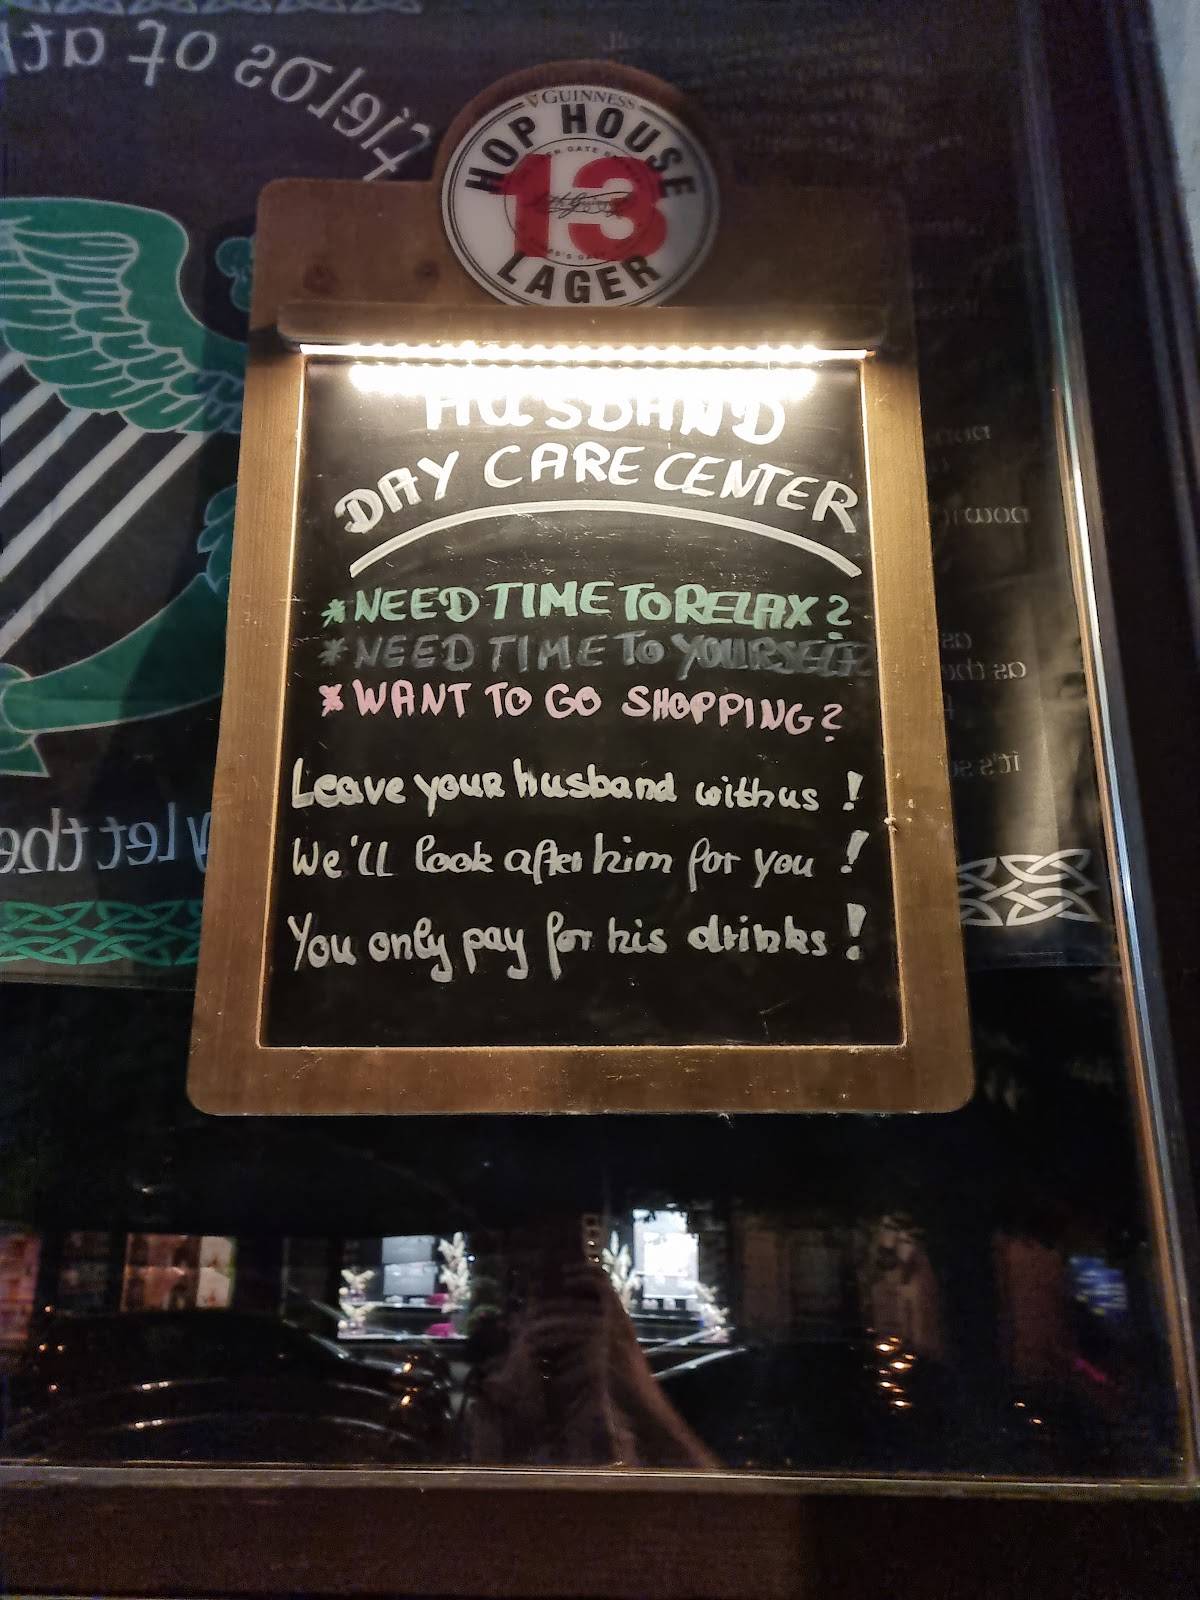 fields of ath
GUINNESS
HOP HOUSE
13
LAGER
HUSBAND
DAY CARE CENTER
* NEED TIME TO RELAX?
* NEED TIME TO YOURSELF?
* WANT TO GO SHOPPING?
Leave your husband with us !
We'll look after him for you !
You only pay for his drinks !
as
as the
it's so
let the